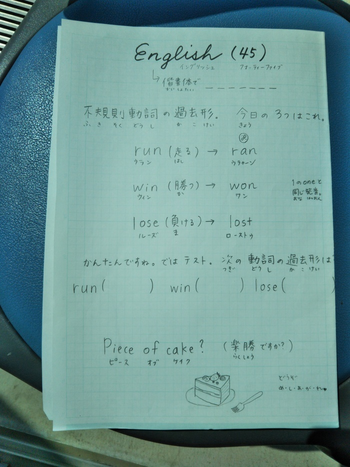 English (45)
イングリッシュ フォーティーファイブ
筆書体で
不規則動詞の過去形. 今日の3つはこれ。
ふきそくどうし かこけい きょう
run (走る) → ran
ラン はし
win (勝つ) → won
ウィン か ワン
1のoneと同じ発音。
lose (負ける) → lost
ルーズ ま ローストゥ
かんたんですね。では テスト. 次の動詞の過去形は
つぎ どうし かこけい
run ( ) win ( ) lose ( )
Piece of cake? (楽勝ですか?)
ピース オブ ケイク らくしょう
どうぞ
め・し・あ・が・れ